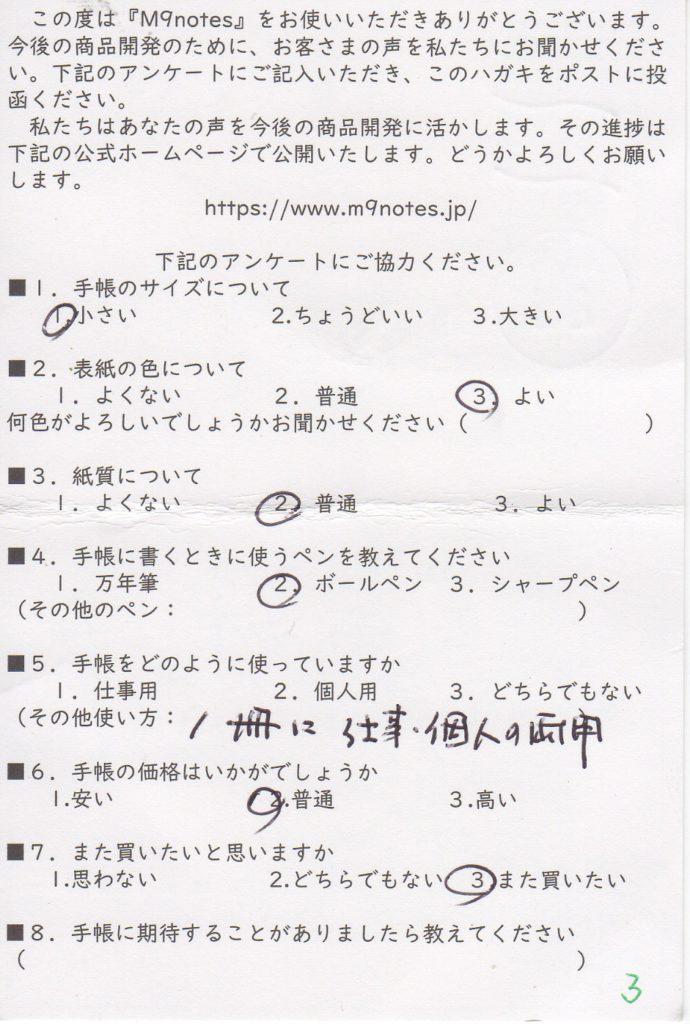 この度は『M9notes』をお使いいただきありがとうございます。
今後の商品開発のために、お客さまの声を私たちにお聞かせくださ
い。下記のアンケートにご記入いただき、このハガキをポストに投
函ください。
私たちはあなたの声を今後の商品開発に活かします。その進捗は
下記の公式ホームページで公開いたします。どうかよろしくお願い
します。
https://www.m9notes.jp/
下記のアンケートにご協力ください。
■１．手帳のサイズについて
1.小さい 2.ちょうどいい 3.大きい
■２．表紙の色について
１．よくない ２．普通 ３．よい
何色がよろしいでしょうかお聞かせください（ ）
■３．紙質について
１．よくない ２．普通 ３．よい
■４．手帳に書くときに使うペンを教えてください
１．万年筆 ２．ボールペン ３．シャープペン
（その他のペン： ）
■５．手帳をどのように使っていますか
１．仕事用 ２．個人用 ３．どちらでもない
（その他使い方： 1冊に仕事・個人の両用
■６．手帳の価格はいかがでしょうか
1.安い 2.普通 3.高い
■７．また買いたいと思いますか
1.思わない 2.どちらでもない 3.また買いたい
■８．手帳に期待することがありましたら教えてください
（ ）
3